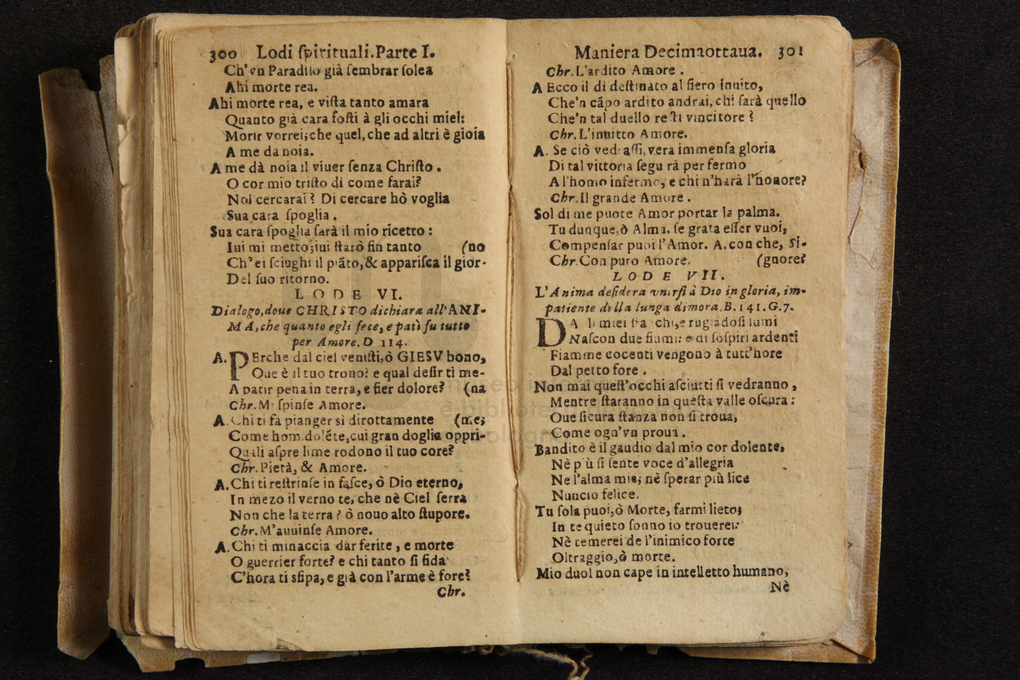 300 Lodi ſpirituali. Parte I.
Ch'vn Paradiſo già ſembrar ſolea
Ahi morte rea.
Ahi morte rea, e viſta tanto amara
Quanto già cara foſti à gli occhi miei:
Morir vorrei; che quel, che ad altri è gioia
A me da noia.
A me dà noia il viuer ſenza Chriſto.
O cor mio triſto di come farai?
Nol cercarai? Di cercare hò voglia
Sua cara ſpoglia.
Sua cara ſpoglia ſarà il mio ricetto:
Iui mi metto; iui ſtarò fin tanto (no
Ch'ei ſciughi il piãto, & appariſca il gior-
Del ſuo ritorno.
LODE VI.
Dialogo, doue CHRISTO dichiara all'ANI-
MA, che quanto egli fece, e patì fu tutto
per Amore. D 114.
A. PErche dal ciel veniſti, ò GIESV bono,
Oue è il tuo trono? e qual deſir ti me-
A patir pena in terra, e fier dolore? (na
Chr. Mi ſpinſe Amore.
A. Chi ti fà pianger sì dirottamente (me;
Come hom doléte, cui gran doglia oppri-
Quali aſpre lime rodono il tuo core?
Chr. Pietà, & Amore.
A. Chi ti reſtrinſe in faſce, ò Dio eterno,
In mezo il verno te, che nè Ciel ſerra
Non che la terra? ò nouo alto ſtupore.
Chr. M'auuinſe Amore.
A. Chi ti minaccia dar ferite, e morte
O guerrier forte? e chi tanto ſi fida
C'hora ti sfipa, e già con l'arme è fore?
Chr.
Maniera Decimaottaua. 301
Chr. L'ardito Amore.
A Ecco il dì deſtinato al fiero inuito,
Che'n cãpo ardito andrai, chi ſarà quello
Che'n tal duello reſti vincitore?
Chr. L'inuitto Amore.
A. Se ciò vedraſſi, vera immenſa gloria
Di tal vittoria ſegurà per fermo
A l'homo infermo, e chi n'harà l'honore?
Chr. Il grande Amore.
Sol di me puote Amor portar la palma.
Tu dunque, ò Alma, ſe grata eſſer vuoi,
Compenſar puoi l'Amor. A. con che, Si-
Chr. Con puro Amore. (gnore?
LODE VII.
L'Anima deſidera vnirſi à Dio in gloria, im-
patiente della lunga dimora. B. 141. G. 7.
DA li miei ſtachi, e rugiadoſi lumi
Naſcon due fiumi: e di ſoſpiri ardenti
Fiamme cocenti vengono à tutt'hore
Dal petto fore.
Non mai queſt'occhi aſciutti ſi vedranno,
Mentre ſtaranno in queſta valle oſcura:
Oue ſicura ſtanza non ſi troua,
Come ogn'vn proua.
Bandito è il gaudio dal mio cor dolente,
Nè più ſi ſente voce d'allegria
Ne l'alma mia; nè ſperar più lice
Nuncio felice.
Tu ſola puoi, ò Morte, farmi lieto;
In te quieto ſonno io trouerei:
Nè temerei de l'inimico forte
Oltraggio, ò morte.
Mio duol non cape in intelletto humano,
Nè